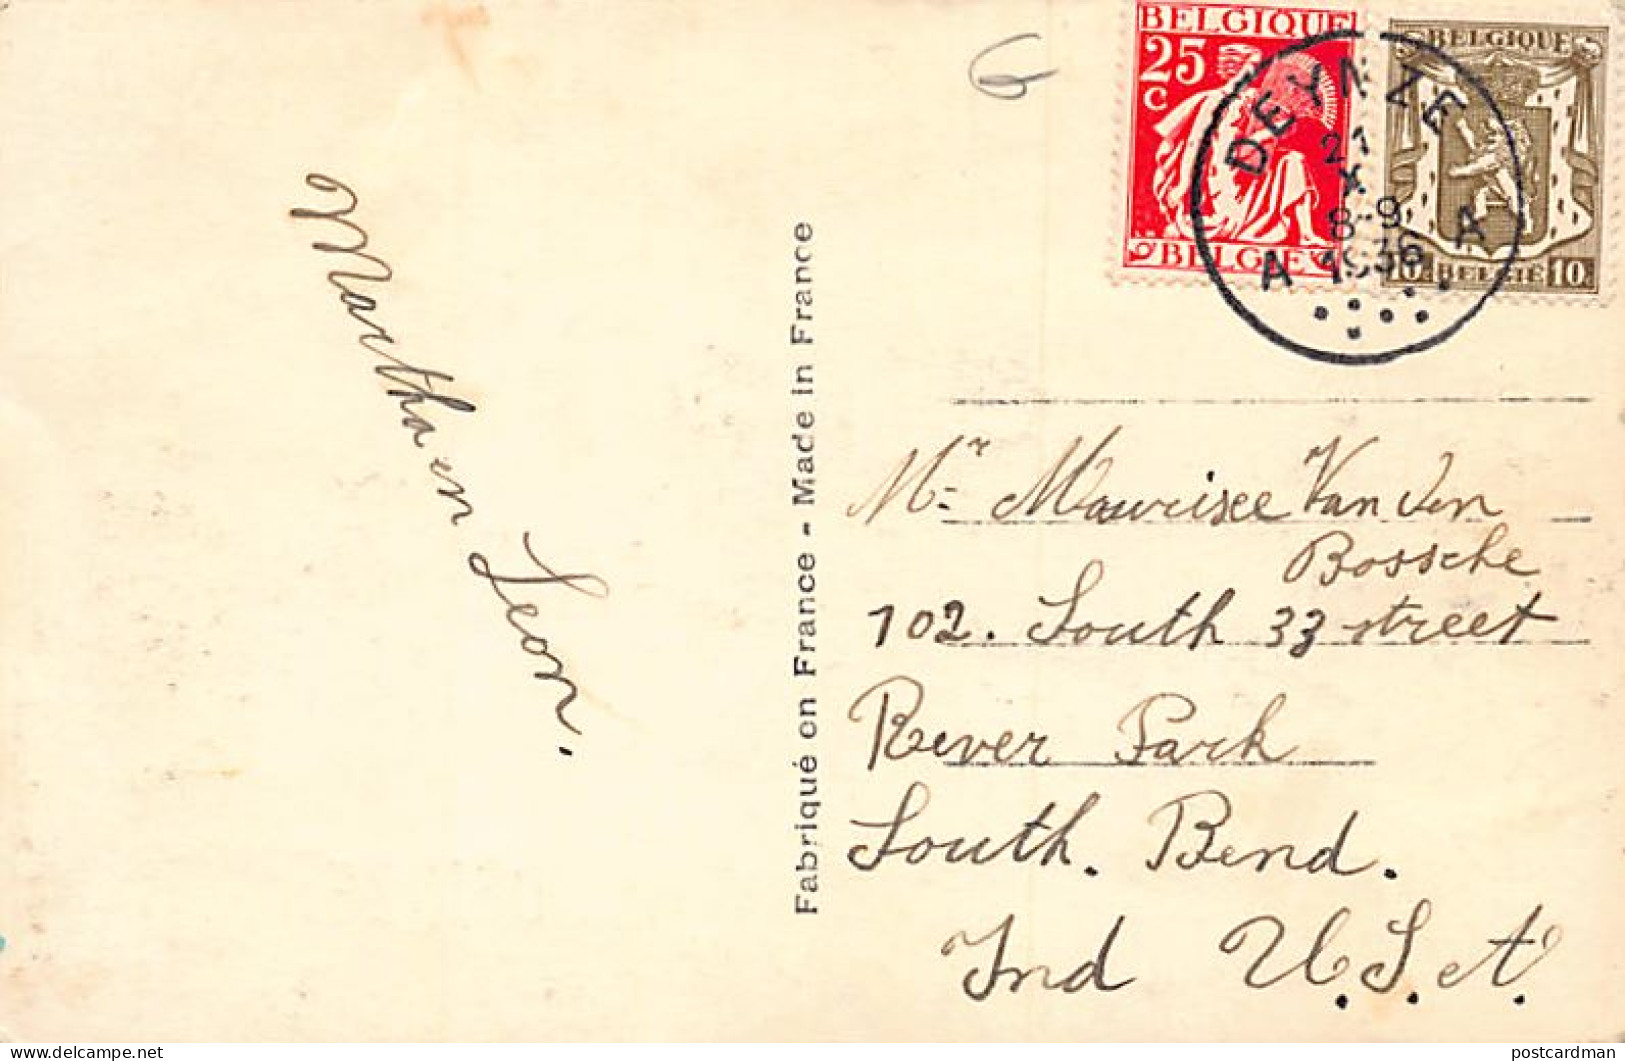 Martha en Leon.
Fabriqué en France - Made in France
BELGIQUE
25
C
BELGIË
BELGIQUE
10 BELGIË 10
DEYNZE
21
X
8-9
1936
A A
Mr Maurisee Van den
Bossche
102. South 33 street
Rever Park
South. Bend.
Ind U.S.A.
postcardman